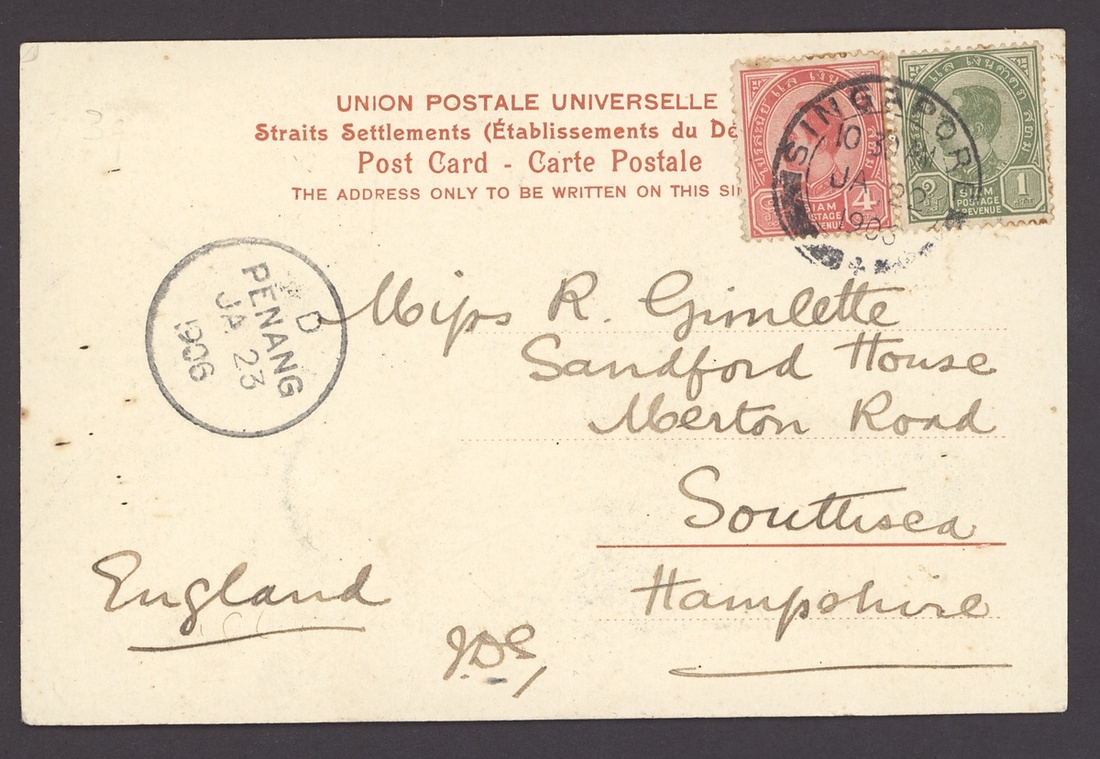 UNION POSTALE UNIVERSELLE
Straits Settlements (Établissements du Dé
Post Card - Carte Postale
THE ADDRESS ONLY TO BE WRITTEN ON THIS SI
SIAM
POSTAGE
REVENUE
4
SIAM
POSTAGE
REVENUE
1
SINGAPORE
10 30
JA 20
1906
D
PENANG
JA 23
1906
Miss R. Gimlette
Sandford House
Merton Road
Southsea
Hampshire
England
J.D.S,